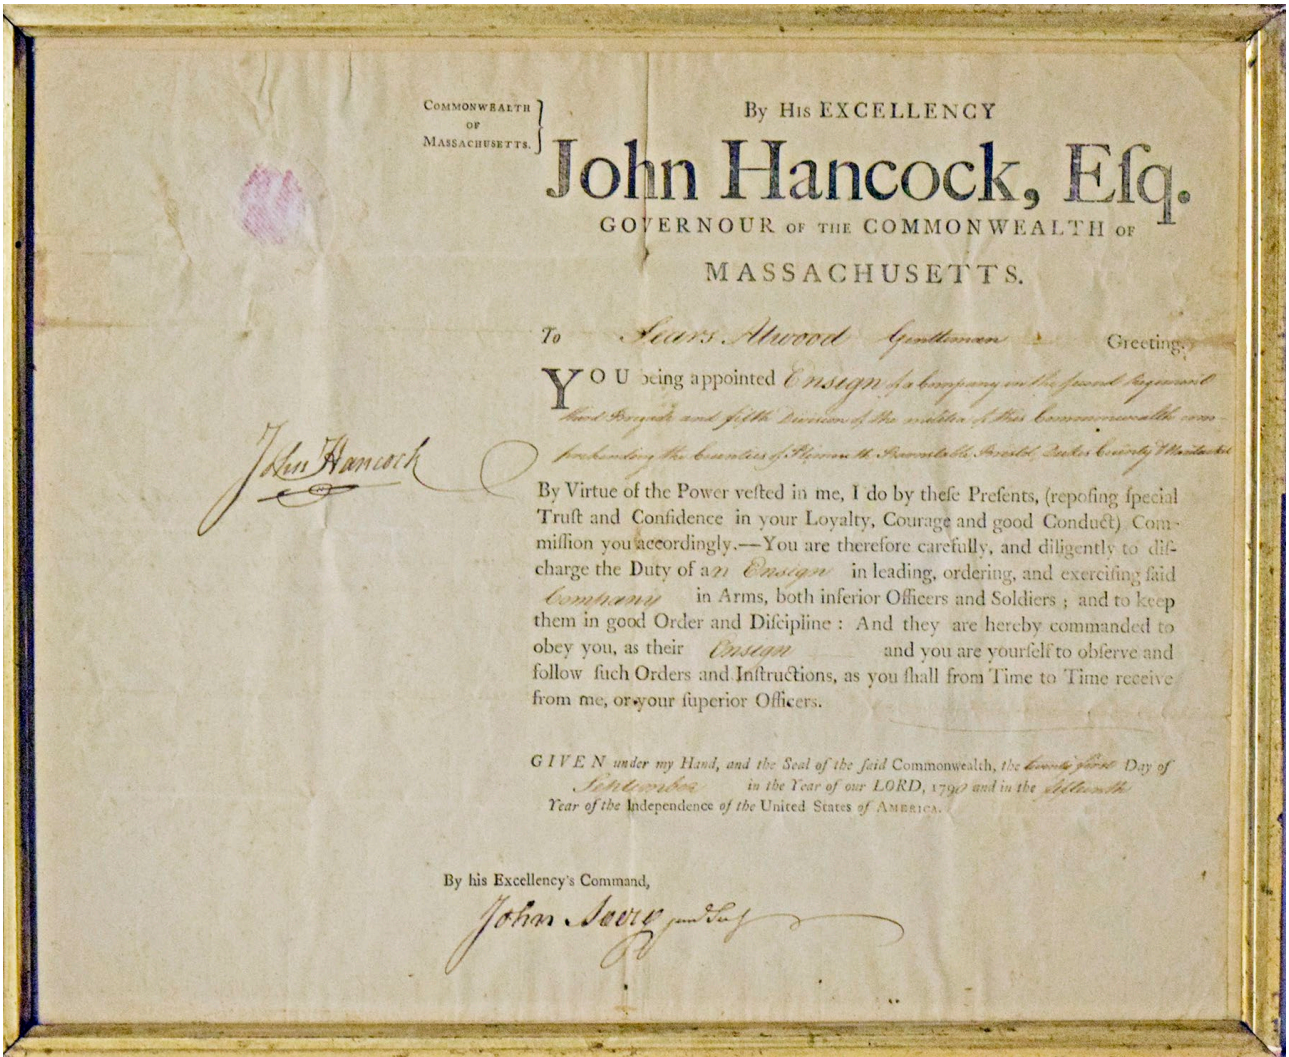 COMMONWEALTH
OF
MASSACHUSETTS.
By His EXCELLENCY
John Hancock, Eſq.
GOVERNOUR OF THE COMMONWEALTH OF
MASSACHUSETTS.
To Sears Atwood Gentleman Greeting.
YOU being appointed Ensign of a Company in the second Regiment
third Brigade and fifth Division of the militia of this Commonwealth com-
prehending the Counties of Plymouth Barnstable Bristol, Dukes County & Nantucket
John Hancock
By Virtue of the Power veſted in me, I do by theſe Preſents, (repoſing ſpecial
Truſt and Confidence in your Loyalty, Courage and good Conduct) Com-
miſſion you accordingly.—You are therefore carefully, and diligently to diſ-
charge the Duty of an Ensign in leading, ordering, and exerciſing ſaid
Company in Arms, both inferior Officers and Soldiers ; and to keep
them in good Order and Diſcipline : And they are hereby commanded to
obey you, as their Ensign and you are yourſelf to obſerve and
follow ſuch Orders and Inſtructions, as you ſhall from Time to Time receive
from me, or your ſuperior Officers.
GIVEN under my Hand, and the Seal of the ſaid Commonwealth, the twenty first Day of
September in the Year of our LORD, 1790 and in the fifteenth
Year of the Independence of the United States of AMERICA.
By his Excellency's Command,
John Avery junr Secy